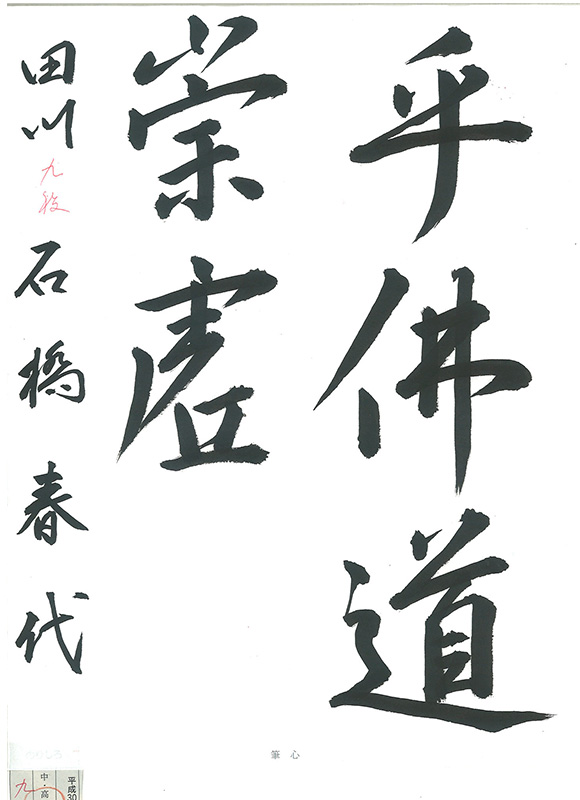 乎佛道
崇虚
田川 九段 石橋春代
筆心
平成30
中・高
九